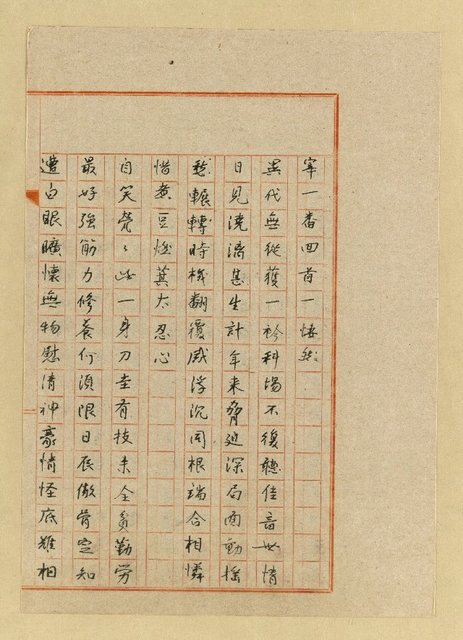 宰一番回首一悽然
異代無從獲一衿科場不復聽佳音世情
日見澆漓甚生計年来脅迫深局面動搖
愁輾轉時機翻覆感浮沉同根端合相憐
惜煮豆燃萁太忍心
自笑煢〻此一身刀圭有技未全貧勤勞
最好強筋力修養何須限日辰傲骨定知
遭白眼曠懷無物慰清神豪情怪底難相